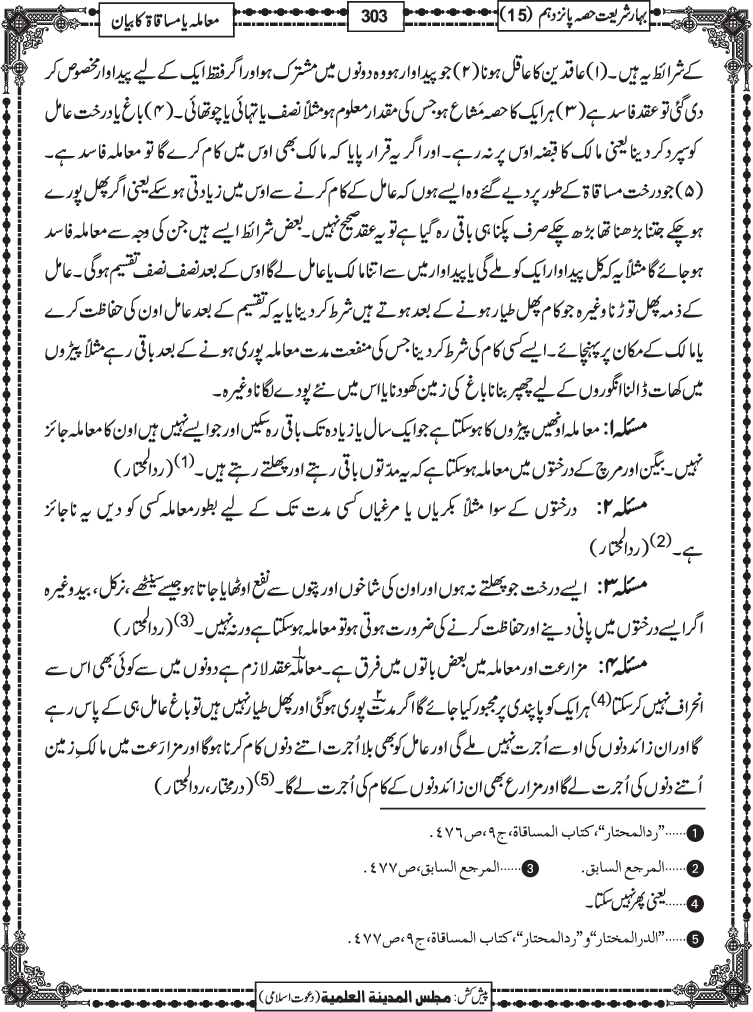 بہارِ شریعت حصہ پانزدہم (15)
303
معاملہ یا مساقاۃ کا بیان
کے شرائط یہ ہیں۔ (۱) عاقدین کا عاقل ہونا (۲) جو پیداوار ہو وہ دونوں میں مشترک ہو اور اگر فقط ایک کے لیے پیداوار مخصوص کر
دی گئی تو عقد فاسد ہے (۳) ہر ایک کا حصہ مَشاع ہو جس کی مقدار معلوم ہو مثلاً نصف یا تہائی یا چوتھائی۔ (۴) باغ یا درخت عامل
کو سپرد کر دینا یعنی مالک کا قبضہ اوس پر نہ رہے۔ اور اگر یہ قرار پایا کہ مالک بھی اوس میں کام کرے گا تو معاملہ فاسد ہے۔
(۵) جو درخت مساقاۃ کے طور پر دیے گئے وہ ایسے ہوں کہ عامل کے کام کرنے سے اوس میں زیادتی ہو سکے یعنی اگر پھل پورے
ہو چکے جتنا بڑھنا تھا بڑھ چکے صرف پکنا ہی باقی رہ گیا ہے تو یہ عقد صحیح نہیں۔ بعض شرائط ایسے ہیں جن کی وجہ سے معاملہ فاسد
ہو جائے گا مثلاً یہ کہ کل پیداوار ایک کو ملے گی یا پیداوار میں سے اتنا مالک یا عامل لے گا اوس کے بعد نصف نصف تقسیم ہوگی۔ عامل
کے ذمہ پھل توڑنا وغیرہ جو کام پھل طیار ہونے کے بعد ہوتے ہیں شرط کر دینا یا یہ کہ تقسیم کے بعد عامل اون کی حفاظت کرے
یا مالک کے مکان پر پہنچائے۔ ایسے کسی کام کی شرط کر دینا جس کی منفعت مدت معاملہ پوری ہونے کے بعد باقی رہے مثلاً پیڑوں
میں کھات ڈالنا انگوروں کے لیے چھپر بنانا باغ کی زمین کھودنا یا اس میں نئے پودے لگانا وغیرہ۔
مسئلہ ۱: معاملہ اونھیں پیڑوں کا ہو سکتا ہے جو ایک سال یا زیادہ تک باقی رہ سکیں اور جو ایسے نہیں ہیں اون کا معاملہ جائز
نہیں۔ بیگن اور مرچ کے درختوں میں معاملہ ہو سکتا ہے کہ یہ مدّتوں باقی رہتے اور پھلتے رہتے ہیں۔ (1) (ردالمحتار)
مسئلہ ۲: درختوں کے سوا مثلاً بکریاں یا مرغیاں کسی مدت تک کے لیے بطور معاملہ کسی کو دیں یہ ناجائز
ہے۔ (2) (ردالمحتار)
مسئلہ ۳: ایسے درخت جو پھلتے نہ ہوں اور اون کی شاخوں اور پتوں سے نفع اوٹھایا جاتا ہو جیسے سینٹھے، نرکل، بید وغیرہ
اگر ایسے درختوں میں پانی دینے اور حفاظت کرنے کی ضرورت ہوتی ہو تو معاملہ ہو سکتا ہے ورنہ نہیں۔ (3) (ردالمحتار)
مسئلہ ۴: مزارعت اور معاملہ میں بعض باتوں میں فرق ہے۔ معاملہ ۱ عقد لازم ہے دونوں میں سے کوئی بھی اس سے
انحراف نہیں کر سکتا (4) ہر ایک کو پابندی پر مجبور کیا جائے گا اگر مدت ۲ پوری ہو گئی اور پھل طیار نہیں ہیں تو باغ عامل ہی کے پاس رہے
گا اور ان زائد دنوں کی اوسے اُجرت نہیں ملے گی اور عامل کو بھی بلا اُجرت اتنے دنوں کام کرنا ہوگا اور مزارَعت میں مالکِ زمین
اُتنے دنوں کی اُجرت لے گا اور مزارع بھی ان زائد دنوں کے کام کی اُجرت لے گا۔ (5) (درمختار، ردالمحتار)
1 ......"ردالمحتار"، کتاب المساقاۃ، ج۹، ص۴۷۶.
2 ......المرجع السابق. 3 ......المرجع السابق، ص۴۷۷.
4 ......یعنی پھر نہیں سکتا۔
5 ......"الدرالمختار" و "ردالمحتار"، کتاب المساقاۃ، ج۹، ص۴۷۷.
پیش کش: مجلس المدینة العلمیة (دعوت اسلامی)